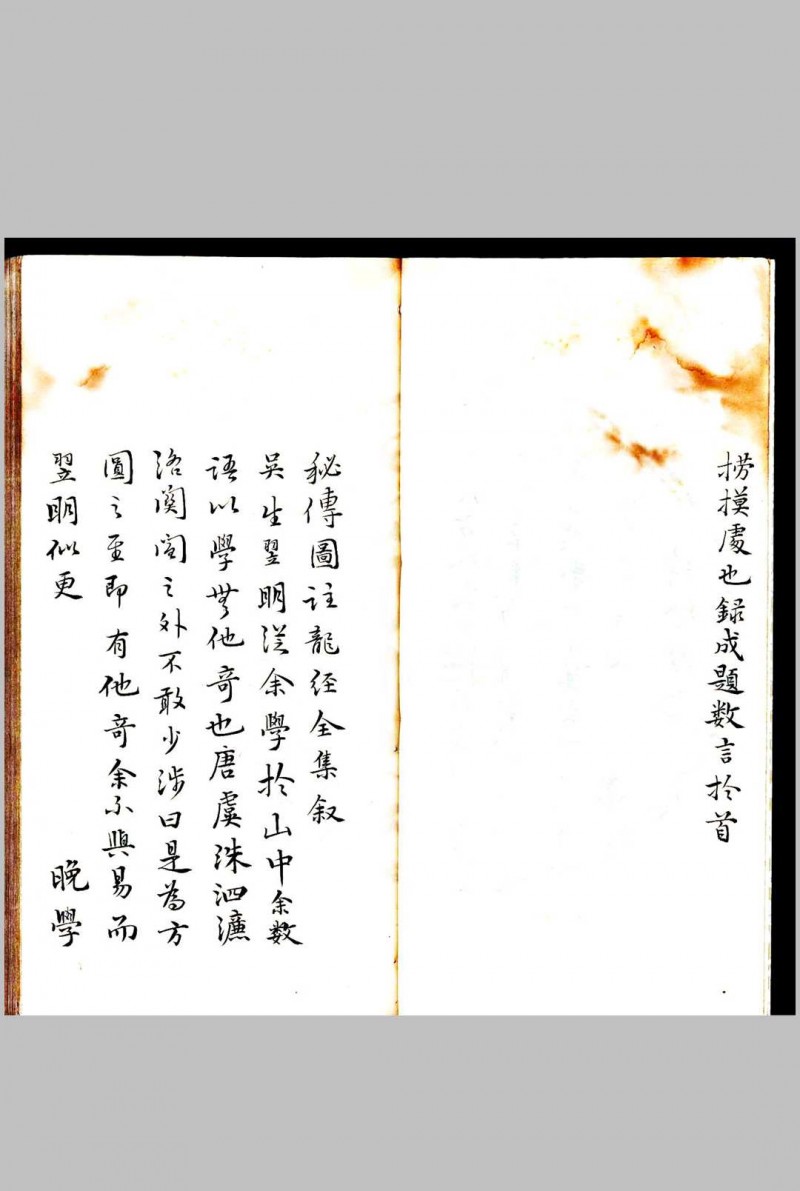 撈摸處也録成題数言扵首
秘傳圖註龍经全集叙
吳生翌明從余學扵山中余数
语以學無他奇也唐虞洙泗濂
洛関閩之外不敢少涉曰是為方
圓之至即有他奇余不與易而
翌明似更
晚學